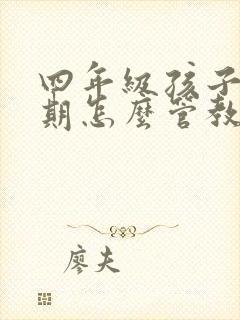 四年级孩子
期怎麼管教
廖夫